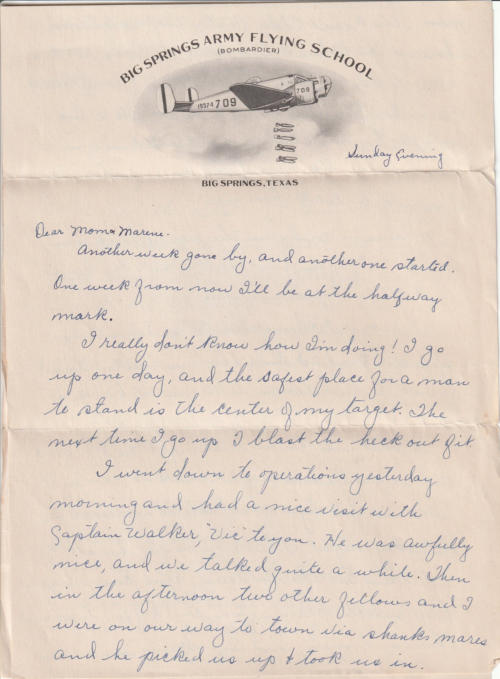 BIG SPRINGS ARMY FLYING SCHOOL
(BOMBARDIER)
19374 709
709
Sunday Evening
BIG SPRINGS, TEXAS
Dear Mom & Marene.
Another week gone by, and another one started.
One week from now I'll be at the halfway
mark.
I really don't know how I'm doing! I go
up one day, and the safest place for a man
to stand is the center of my target. The
next time I go up I blast the heck out of it.
I went down to operations yesterday
morning and had a nice visit with
Captain Walker, "Vic" to you. He was awfully
nice, and we talked quite a while. Then
in the afternoon two other fellows and I
were on our way to town via shanks mares
and he picked us up & took us in.